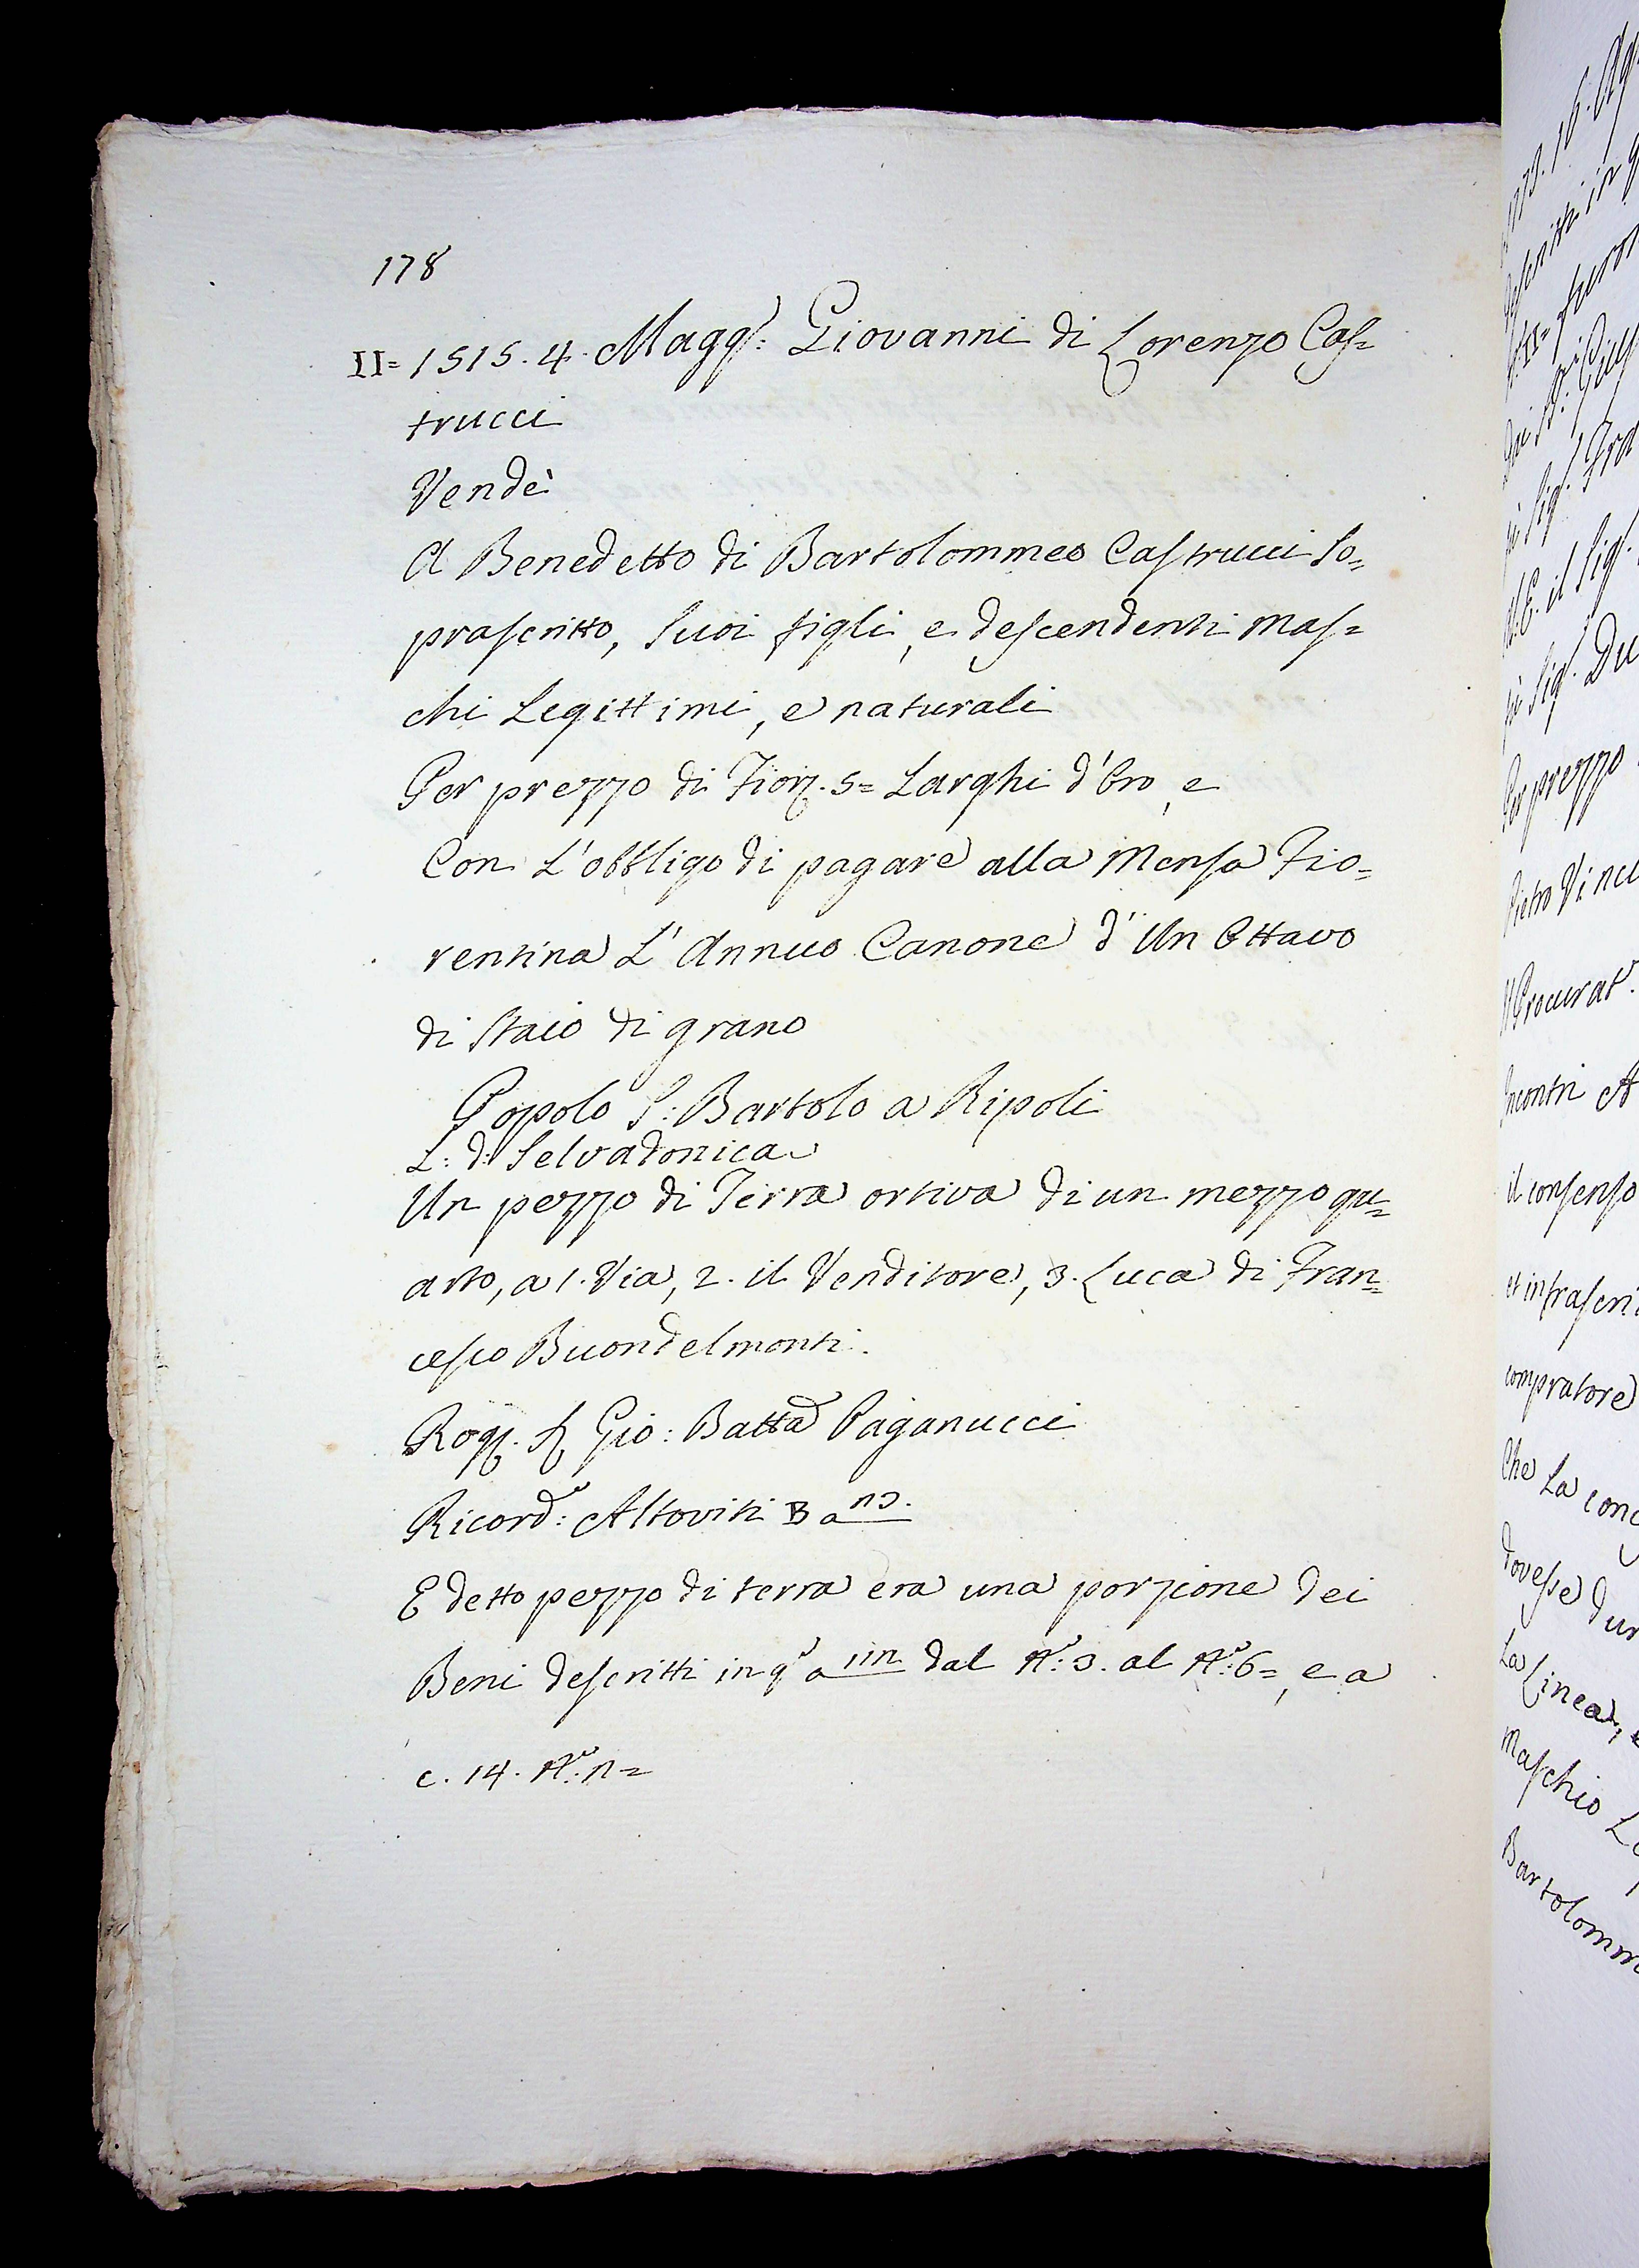 178
II= 1515. 4. Magg: Giovanni di Lorenzo Cas=
trucci
Vendè
A Benedetto di Bartolommeo Castrucci so=
prascritto, suoi figli, e descendenti mas=
chi Legittimi, e naturali
Per prezzo di Fior. 5= Larghi d'Oro, e
Con L'obbligo di pagare alla Mensa Fio=
rentina L'Annuo Canone d'Un Ottavo
di Staio di grano
Popolo S: Bartolo a Ripoli
L: d: Selvadonica
Un pezzo di Terra ortiva di un mezzo qu=
arto, a 1. Via, 2. il Venditore, 3. Luca di Fran=
cesco Buondelmonti.
Rog. Gio: Batta Paganucci
Ricord: Altoviti B a
E detto pezzo di terra era una porzione dei
Beni descritti in q.o a dal N.o: 3. al N.o: 6=, e a
c. 14. N.o:
Pietro Vinci
Procurat.
il consenso
compratore
Che La
dovesse
La Linea,
Maschio